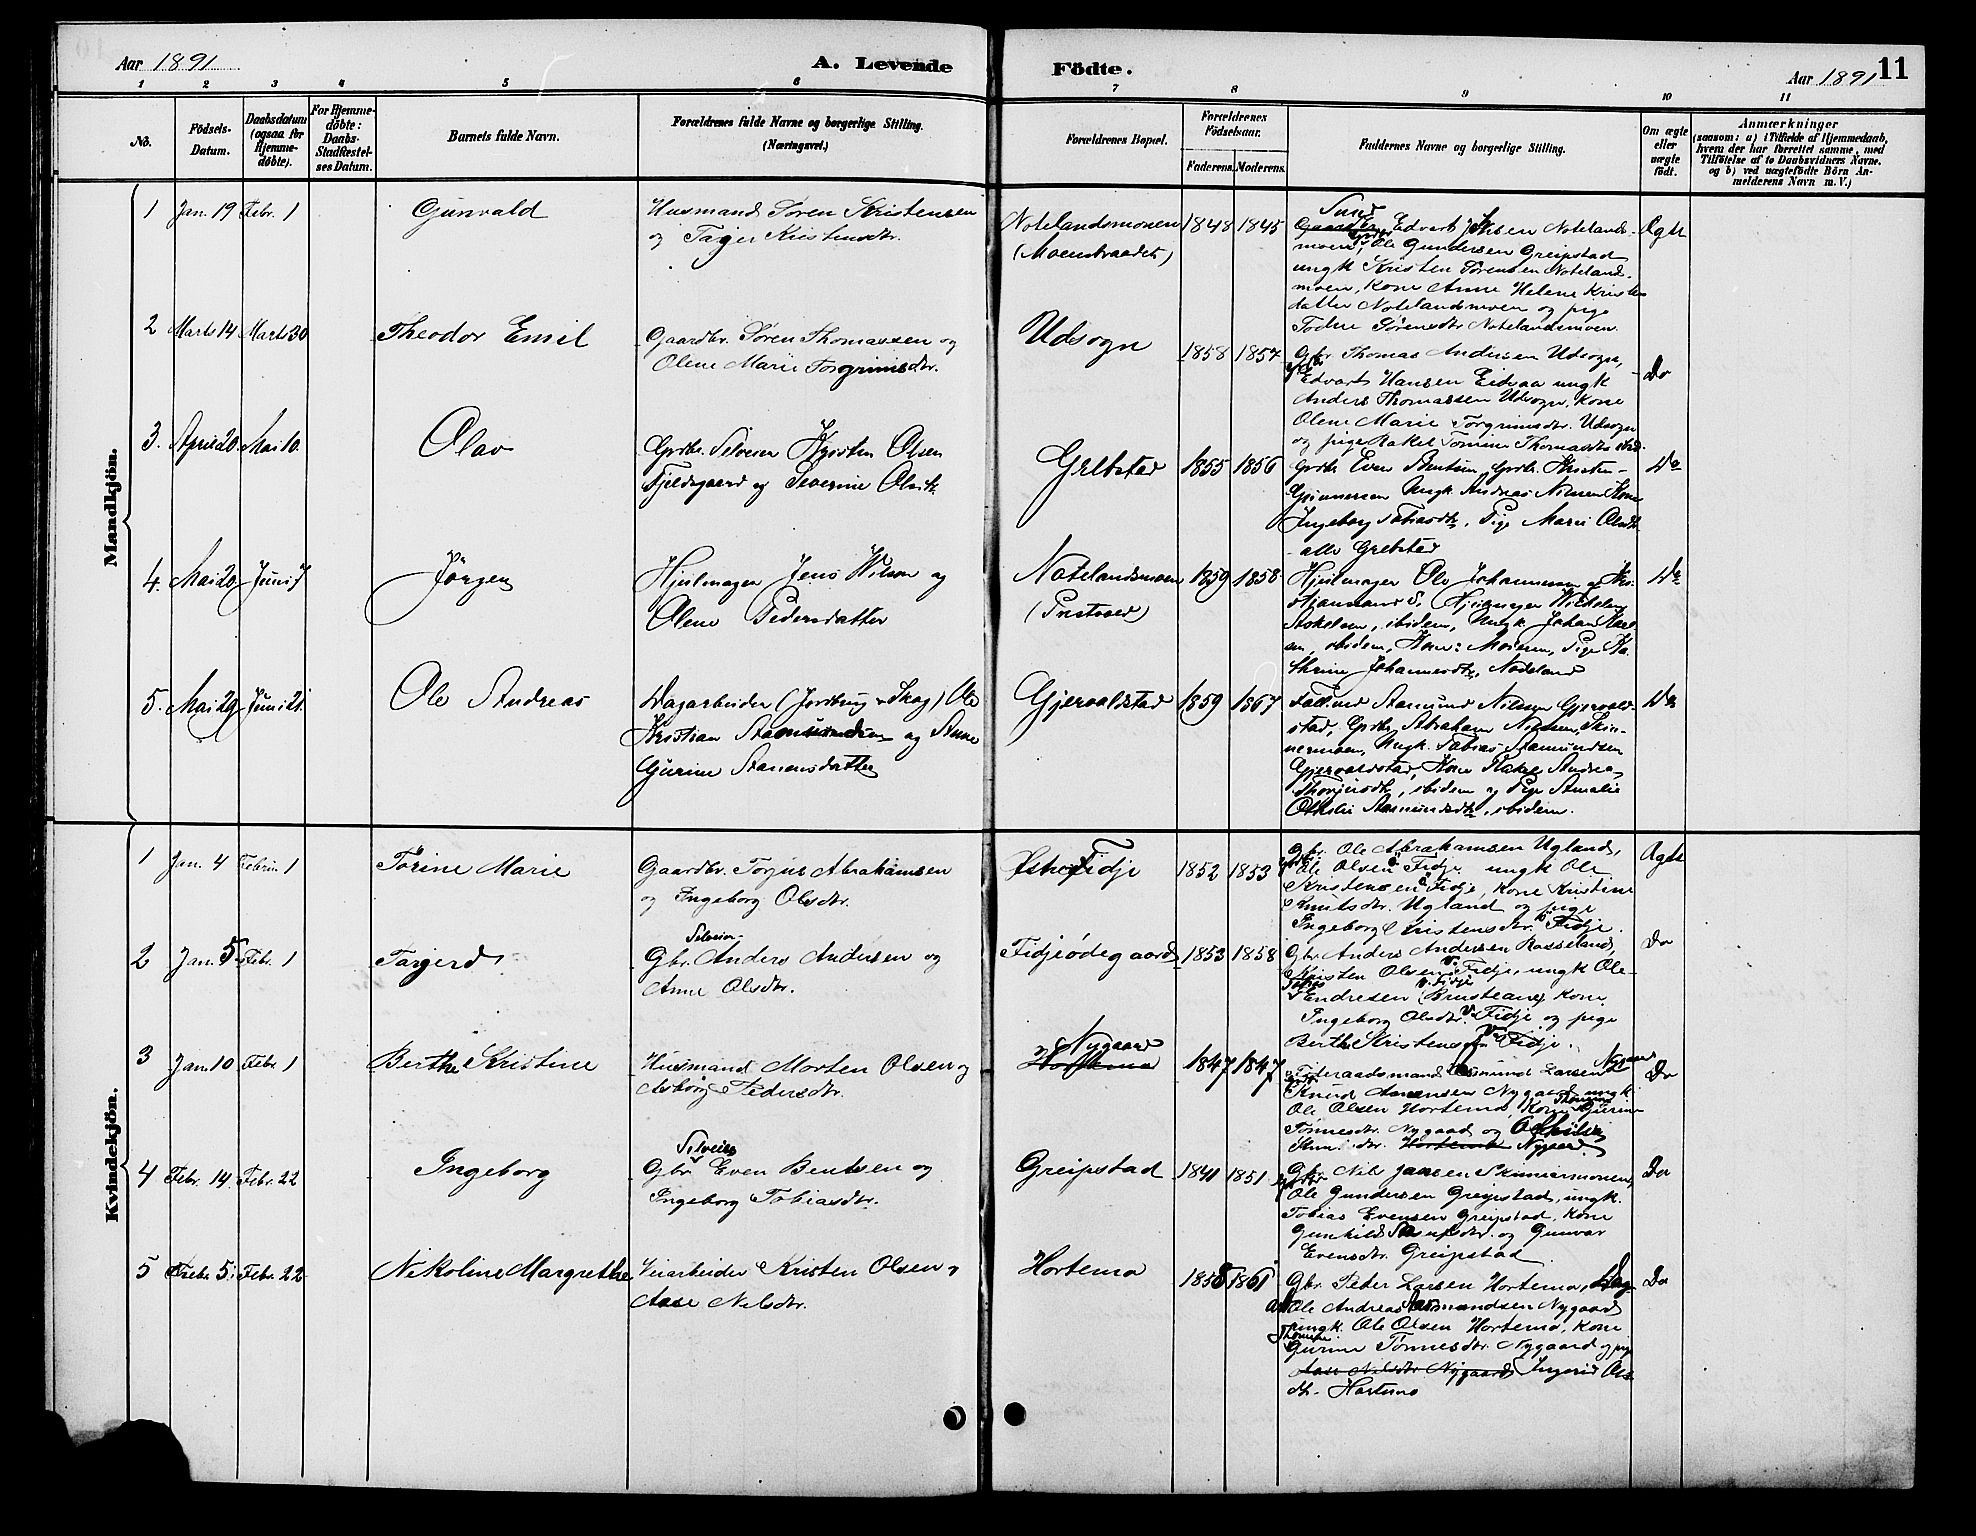 Aar 1891
A. Levende Födte.
Aar 1891
11
1 2 3 4 5 6 7 8 9 10 11
No.
Födsels-Datum.
Daabsdatum (ogsaa for Hjemme-döbte).
For Hjemme-döbte: Daabs-Stadfæstel-ses Datum.
Barnets fulde Navn.
Forældrenes fulde Navne og borgerlige Stilling.
(Næringsvei.)
Forældrenes Bopæl.
Forældrenes Födselsaar.
Faderens. Moderens.
Faddernes Navne og borgerlige Stilling.
Om ægte eller uægte födt.
Anmærkninger
(saasom: a) i Tilfælde af Hjemmedaab,
hvem der har forrettet samme, med
Tilföielse af to Daabsvidners Navne,
og b) ved uægtefödte Börn An-
melderens Navn m. V.)
Mandkjön.
1 Jan. 19 Febr. 1 Gunvald
Husmand Søren Kristensen
og Tarjer Kristensdtr.
Notelandsmoen
1848 1845
Edvart Notelands-
moen, Ole Gundersen Greipstad
ungk Kristen Sørensen Noteland-
moen, Kone Anne Helene Kristens
datter Notelandsmoen og pige
Todne Sørensdtr Notelandsmoen.
Ægte
2 Marts 14 Marts 30 Theodor Emil
Gaardbr. Søren Thomassen og
Olene Marie Torgrimsdtr.
Udsogn
1858 1857
Gbr. Thomas Andersen Udsogn,
Edvart Hansen Eidsaa ungk
Anders Thomassen Udsogn, Kone
Olene Marie Torgrimsdtr. Udsogn
og pige Rakel Tomine Thomasdtr
Do
3. April 20 Mai 10. Olav
Gbr. Selveier Kristen Olsen
Fjeldsgaard og Severine Olsdtr.
Grebstad
1855 1856
Grdbr. Even Bentsen, Grdbr. Kristen
Gunnersen Ungk. Andreas Nilsen Kone
Ingeborg Tobiasdtr, Pige Marie Olsdtr
alle Grebstad
Do
4. Mai 20 Juni 7 Jörgen
Hjulmager Jens Wilson og
Olene Pedersdatter
Notelandsmoen
1859 1858
Hjulmager Ole Johannesen
Hjulmager Wilhelm
Askelsen, ibidem, Ungk. Johan Karl
sen, ibidem, Kone: Moderen, Pige Ka-
thrine Johannesdtr, Nodeland
Do
5. Mai 29 Juni 21 Ole Andreas
Dagarbeider (Jordbrug & Skog) Ole
Kristian Aasmundsen og Anne
Gurine Aanensdatter
Gjervoldstad
1859 1867
Aasmund Nilsen Gjervold-
stad, Grdbr. Abraham Nilsen, Skin-
nermoen, Ungk. Tobias Aasmundsen
Gjervoldstad, Kone Rakel Andrea
ibidem og Pige Amalie
Othilie Aasmundsdtr, ibidem.
Do
Kvindekjön.
1 Jan. 4 Februar 1 Torine Marie
Gaardbr. Torjus Abrahamsen
og Ingeborg Olsdtr.
Østre Fidje
1852 1853
Gbr. Ole Abrahamsen Ugland,
Ole Olsen Fidje, ungk Ole
Kristensen Fidje, Kone Kristine
Knutsdtr. Ugland og pige
Ingeborg Kristensdtr. Fidje.
Ægte
2 Jan. 5 Febr. 1 Targerd
Selveier
Gbr. Anders Andersen og
Anne Olsdtr.
Fidjeødegaard
1853 1858
Gbr Anders Andersen Rosseland,
Kristen Olsen V. Fidje, ungk Ole
V. Fidje
Endresen Kone
Ingeborg Olsdtr. V. Fidje og pige
Berthe Kristensdtr V. Fidje.
Do
3 Jan. 10 Febr. 1 Berthe Kristine
Husmand Morten Olsen og
Asborg Pedersdtr.
Nygaard
Hortemo
1847 1847
Føderaadsmand Aasmund Larsen Nygaard
Knud Aanensen Nygaard ungk
Ole Olsen Hortemo, Kone Gurine
Tønnesdtr. Nygaard og Othilie
Hortemo Nygaard.
Do
4 Febr. 14 Febr. 22 Ingeborg
Selveier
Gbr Even Bentsen og
Ingeborg Tobiasdtr.
Greipstad
1841 1851
Gbr. Nils Jansen Skinnermoen,
Ole Gundersen Greipstad, ungk.
Tobias Evensen Greipstad, Kone
Gunhild og Gunvor
Evensdtr. Greipstad
Do
5 Febr. 5. Febr. 22 Nikoline Margrethe
Veiarbeider Kristen Olsen
Aase Nilsdtr.
Hortemo
1858 1861
Gbr. Peder Larsen Hortemo, Dag-
arb Ole Andreas Aasmundsen Nygaard
ungk. Ole Olsen Hortemo, Kone
Gurine Tønnesdtr. Nygaard og pige
Aase Nilsdtr Nygaard Ingerid Ols
dtr. Hortemo
Do